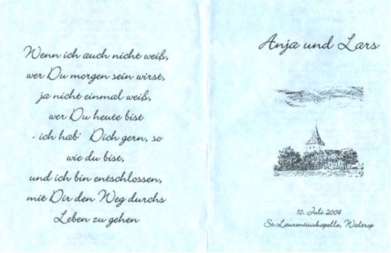 Wenn ich auch nicht weiß,
wer Du morgen sein wirst,
ja nicht einmal weiß,
wer Du heute bist
- ich hab' Dich gern, so
wie du bist,
und ich bin entschlossen,
mit Dir den Weg durchs
Leben zu gehen
Anja und Lars
10. Juli 2004
St. Laurentiuskapelle, Waltrop